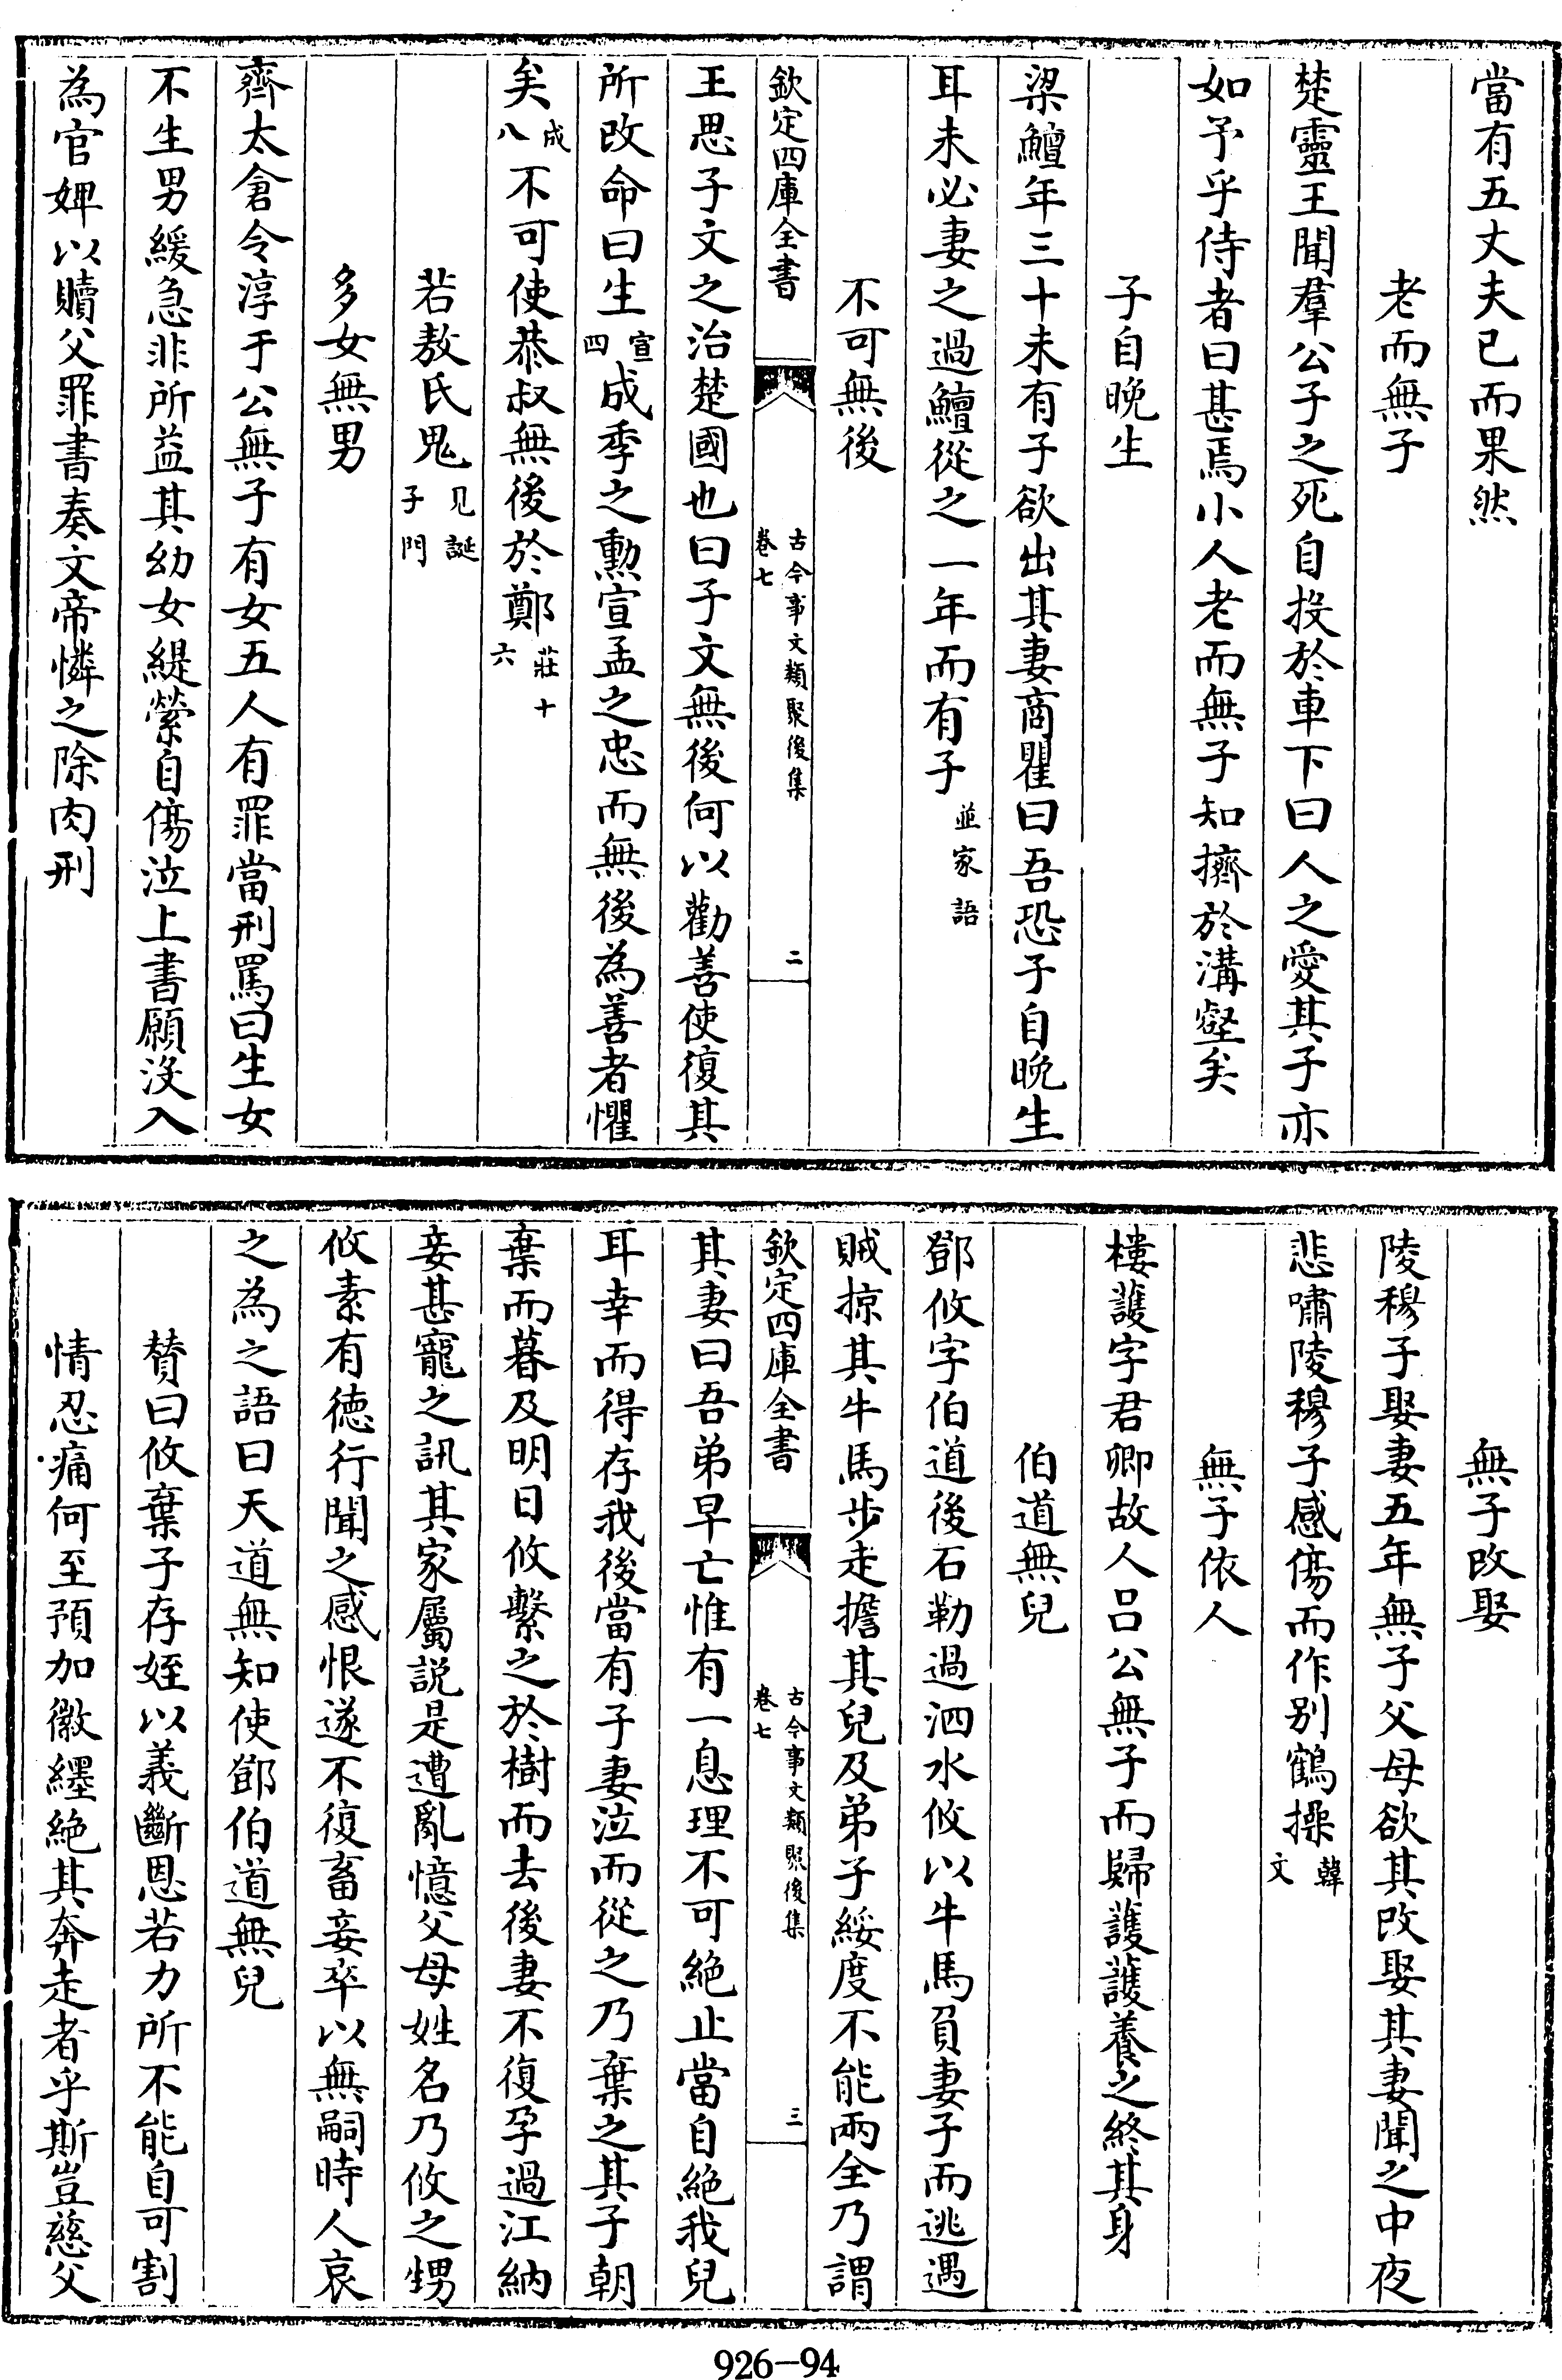 當有五丈夫已而果然
老而無子
楚靈王聞羣公子之死自投於車下曰人之愛其子亦
如予乎侍者曰甚焉小人老而無子知擠於溝壑矣
子自晚生
梁鱣年三十未有子欲出其妻商瞿曰吾恐子自晚生
耳未必妻之過鱣從之一年而有子並家語
不可無後
欽定四庫全書 古今事文類聚後集 卷七 二
王思子文之治楚國也曰子文無後何以勸善使復其
所改命曰生宣四成季之勳宣孟之忠而無後為善者懼
矣成八不可使恭叔無後於鄭莊十六
若敖氏鬼見誕子門
多女無男
齊太倉令淳于公無子有女五人有罪當刑罵曰生女
不生男緩急非所益其幼女緹縈自傷泣上書願沒入
為官婢以贖父罪書奏文帝憐之除肉刑
無子改娶
陵穆子娶妻五年無子父母欲其改娶其妻聞之中夜
悲嘯陵穆子感傷而作别鶴操韓文
無子依人
樓護字君卿故人呂公無子而歸護護養之終其身
伯道無兒
鄧攸字伯道後石勒過泗水攸以牛馬負妻子而逃遇
賊掠其牛馬步走擔其兒及弟子綏度不能兩全乃謂
欽定四庫全書 古今事文類聚後集 卷七 三
其妻曰吾弟早亡惟有一息理不可絶止當自絶我兒
耳幸而得存我後當有子妻泣而從之乃棄之其子朝
棄而暮及明日攸繫之於樹而去後妻不復孕過江納
妾甚寵之訊其家屬說是遭亂憶父母姓名乃攸之甥
攸素有德行聞之感恨遂不復畜妾卒以無嗣時人哀
之為之語曰天道無知使鄧伯道無兒
賛曰攸棄子存姪以義斷恩若力所不能自可割
情忍痛何至預加徽纆絶其奔走者乎斯豈慈父
926-94